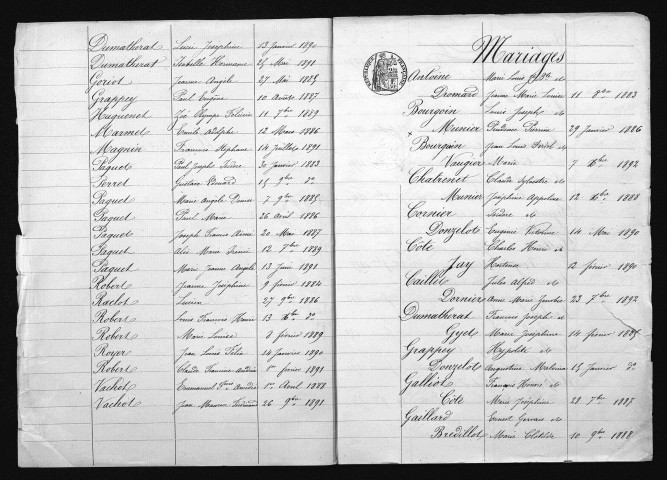 Dumatherat Lucie Joséphine 13 Janvier 1890
Dumatherat Isabelle Hermance 25 Mai 1891
Goriot Jeanne Angèle 27 Mai 1885
Grappey Paul Eugène 10 Août 1887
Huguenet Zoé Olympe Félicie 11 7bre 1889
Marmet Emile Adolphe 12 Mars 1886
Magnin Francois Alphonse 14 Juillet 1891
Paquet Paul Joseph Isidore 30 Janvier 1883
Perret Gustave Edouard 15 9bre do
Paquet Marie Angèle Denise 7 9bre 1885
Paquet Paul Marie 26 Avril 1886
Paquet Joseph Francois Aimé 20 Mai 1887
Paquet Alix Marie 12 7bre 1889
Paquet Marie Jeanne Angèle 13 Juin 1891
Robert Jeanne Joséphine 9 février 1884
Raclot Lucien 27 9bre 1886
Robert Louis Francois Henri 13 Xbre do
Robert Marie Louise 8 février 1889
Royer Jean Louis Félix 14 Janvier 1890
Robert Claude Francois Antoine 1er février 1891
Vachot Emmanuel 1er Avril 1888
Vachot Jean Maurice Ferdinand 26 9bre 1891
Mariages
Antoine Marie Louis &
Dromard Jeanne Marie Louise 11 8bre 1883
Bourgoin Louis Joseph &
Munier Prudence Pierrine 29 Janvier 1886
Bourgoin Jean Louis &
Vaugier Marie 7 Xbre 1892
Chatrenet Claude Sylvestre &
Munier Joséphine Appoline 12 Xbre 1888
Cornier Isidore &
Donzelot Eugénie Victorine 14 Mai 1890
Côte Charles Henri &
Jay Hortense 12 février 1890
Caillet Jules Alfred &
Dornier Anne Marie 23 7bre 1892
Dumatherat Francois Joseph &
Gyet Marie Joséphine 14 février 1885
Grappey Hyppolite &
Donzelot Augustine Melanie 15 Janvier do
Galliot François Henri &
Côte Marie Joséphine 28 7bre 1887
Gaillard Ernest Gervais &
Bredillot Marie Clotilde 10 9bre 1888